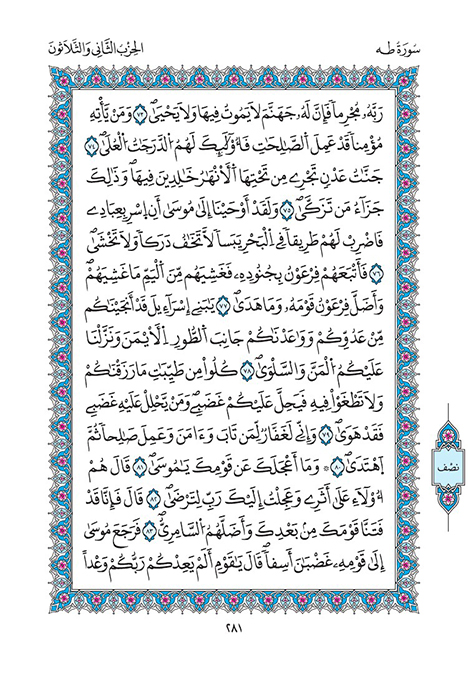 سورة طه
الحزب الثاني والثلاثون
رَبَّهُۥ مُجْرِماٗ فَإِنَّ لَهُۥ جَهَنَّمَ لَا يَمُوتُ فِيهَا وَلَا يَحْيَىٰ ٧٣ وَمَنْ يَّأْتِهِۦ
مُؤْمِناٗ قَدْ عَمِلَ اَ۬لصَّٰلِحَٰتِ فَأُوْلَٰٓئِكَ لَهُمُ اُ۬لدَّرَجَٰتُ اُ۬لْعُلَىٰ ٧٤
جَنَّٰتُ عَدْنٖ تَجْرِے مِن تَحْتِهَا اَ۬لَانْهَٰرُ خَٰلِدِينَ فِيهَا وَذَٰلِكَ
جَزَآءُ مَن تَزَكَّىٰ ٧٥ وَلَقَدَ اَوْحَيْنَآ إِلَىٰ مُوسَىٰٓ أَنِ اِ۪سْرِ بِعِبَادِے
فَاضْرِبْ لَهُمْ طَرِيقاٗ فِے اِ۬لْبَحْرِ يَبَساٗ لَّا تَخَٰفُ دَرَكاٗ وَلَا تَخْشَىٰ
٧٦ فَأَتْبَعَهُمْ فِرْعَوْنُ بِجُنُودِهِۦ فَغَشِيَهُم مِّنَ اَ۬لْيَمِّ مَا غَشِيَهُمْ
وَأَضَلَّ فِرْعَوْنُ قَوْمَهُۥ وَمَا هَدَىٰ ٧٧ يَٰبَنِےٓ إِسْرَآءِيلَ قَدَ اَنجَيْنَٰكُم
مِّنْ عَدُوِّكُمْ وَوَٰعَدْنَٰكُمْ جَانِبَ اَ۬لطُّورِ اِ۬لَايْمَنَ وَنَزَّلْنَا
عَلَيْكُمُ اُ۬لْمَنَّ وَالسَّلْوَىٰ ٧٨ كُلُواْ مِن طَيِّبَٰتِ مَا رَزَقْنَٰكُمْ
وَلَا تَطْغَوْاْ فِيهِ فَيَحِلَّ عَلَيْكُمْ غَضَبِے وَمَنْ يَّحْلِلْ عَلَيْهِ غَضَبِے
فَقَدْ هَوَىٰ ٧٩ وَإِنِّے لَغَفَّارٞ لِّمَن تَابَ وَءَامَنَ وَعَمِلَ صَٰلِحاٗ ثُمَّ
اَ۪هْتَدَىٰ ٨٠ ۞ وَمَآ أَعْجَلَكَ عَن قَوْمِكَ يَٰمُوسَىٰ ٨١ قَالَ هُمُۥٓ
أُوْلَآءِ عَلَىٰٓ أَثَرِے وَعَجِلْتُ إِلَيْكَ رَبِّ لِتَرْضَىٰ ٨٢ قَالَ فَإِنَّا قَدْ
فَتَنَّا قَوْمَكَ مِنۢ بَعْدِكَ وَأَضَلَّهُمُ اُ۬لسَّامِرِيُّ ٨٣ فَرَجَعَ مُوسَىٰٓ
إِلَىٰ قَوْمِهِۦ غَضْبَٰنَ أَسِفاٗ قَالَ يَٰقَوْمِ أَلَمْ يَعِدْكُمْ رَبُّكُمْ وَعْداً
نصف
٢٨١